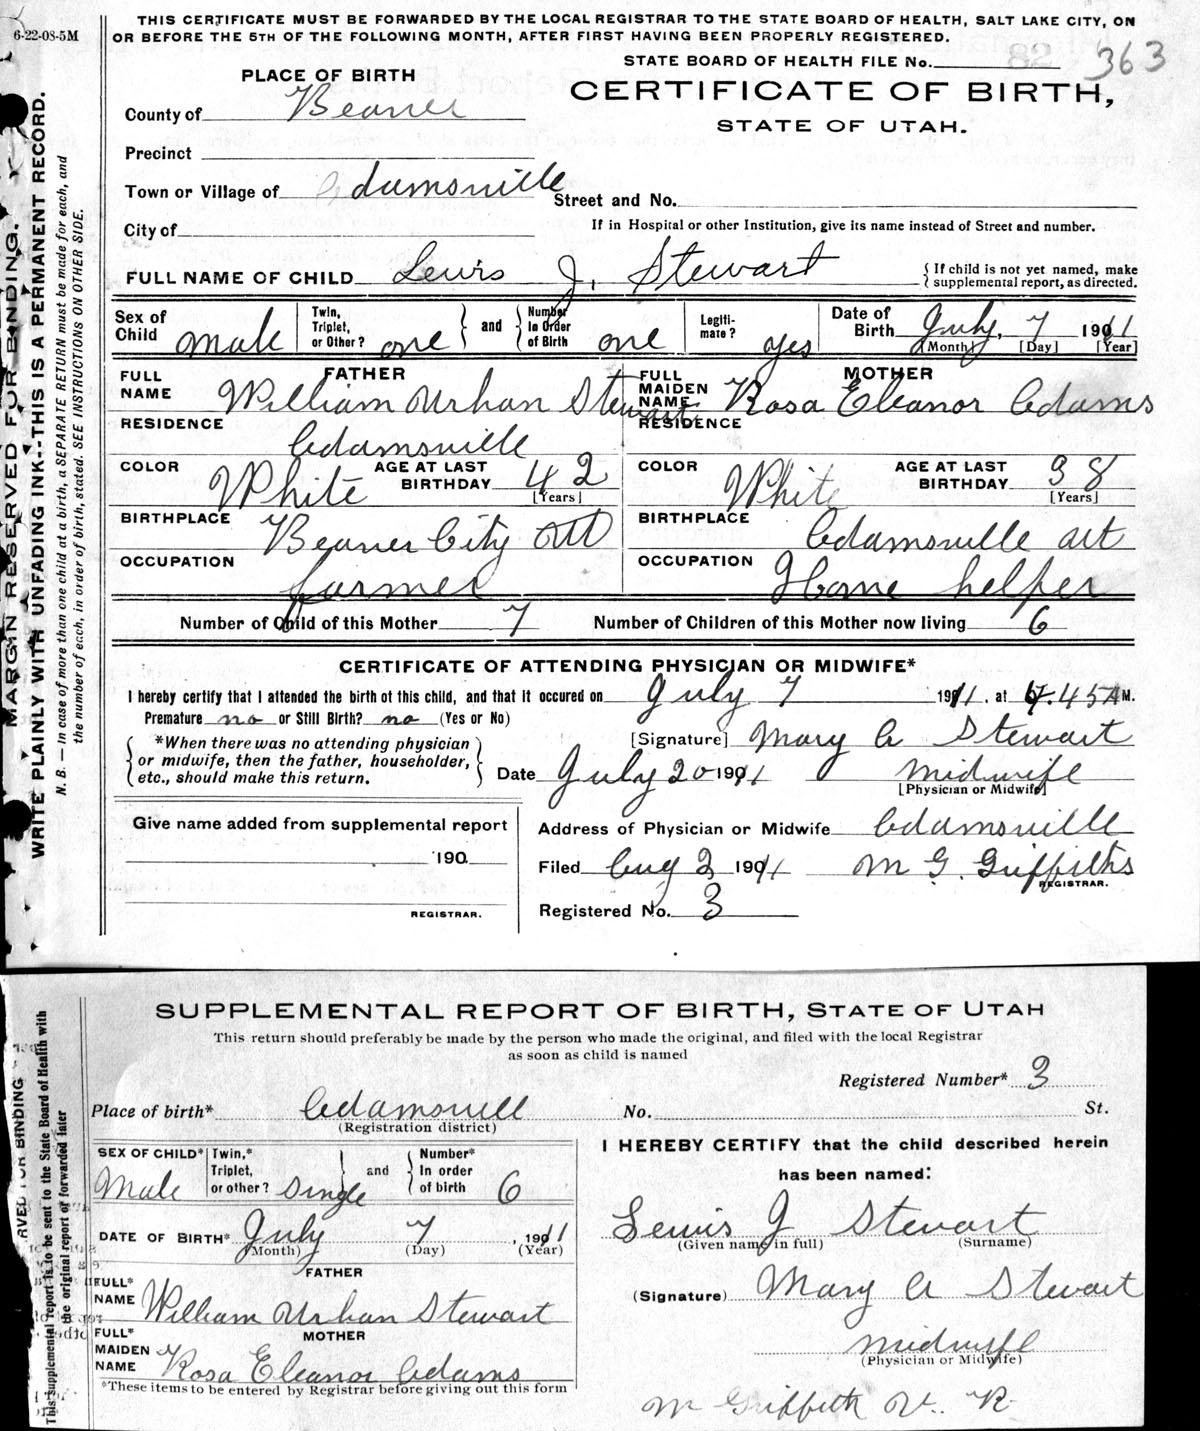 THIS CERTIFICATE MUST BE FORWARDED BY THE LOCAL REGISTRAR TO THE STATE BOARD OF HEALTH, SALT LAKE CITY, ON
OR BEFORE THE 5TH OF THE FOLLOWING MONTH, AFTER FIRST HAVING BEEN PROPERLY REGISTERED.
6-22-08-5M
STATE BOARD OF HEALTH FILE No. 363
PLACE OF BIRTH
CERTIFICATE OF BIRTH,
STATE OF UTAH.
County of Beaver
Precinct
Town or Village of Adamsville Street and No.
City of
If in Hospital or other Institution, give its name instead of Street and number.
FULL NAME OF CHILD Lewis J. Stewart
If child is not yet named, make supplemental report, as directed.
Sex of Child male Twin, Triplet, or Other? one and Number In Order of Birth one Legitimate? yes Date of Birth July, 7 1911
[Month] [Day] [Year]
FATHER
FULL NAME William Urban Stewart
MOTHER
FULL MAIDEN NAME Rosa Eleanor Adams
RESIDENCE Adamsville
RESIDENCE
COLOR White AGE AT LAST BIRTHDAY 42 [Years]
COLOR White AGE AT LAST BIRTHDAY 38 [Years]
BIRTHPLACE Beaver City Ut
BIRTHPLACE Adamsville Ut
OCCUPATION farmer
OCCUPATION Home helper
Number of Child of this Mother 7 Number of Children of this Mother now living 6
CERTIFICATE OF ATTENDING PHYSICIAN OR MIDWIFE*
I hereby certify that I attended the birth of this child, and that it occured on July 7 1911. at 4.45 A M.
Premature no or Still Birth? no (Yes or No)
*When there was no attending physician
or midwife, then the father, householder,
etc., should make this return.
[Signature] Mary A Stewart
Date July 20 1911 midwife
[Physician or Midwife]
Address of Physician or Midwife Adamsville
Filed Aug 2 1911 M G. Griffiths
REGISTRAR.
Registered No. 3
Give name added from supplemental report
190
REGISTRAR.
MARGIN RESERVED FOR BINDING.
WRITE PLAINLY WITH UNFADING INK--THIS IS A PERMANENT RECORD.
N. B. — In case of more than one child at a birth, a SEPARATE RETURN must be made for each, and
the number of each, in order of birth, stated. SEE INSTRUCTIONS ON OTHER SIDE.
SUPPLEMENTAL REPORT OF BIRTH, STATE OF UTAH
This return should preferably be made by the person who made the original, and filed with the local Registrar
as soon as child is named
Registered Number* 3
Place of birth* Adamsvill No. St.
(Registration district)
SEX OF CHILD* Male Twin,* Triplet, or other? Single and Number* In order of birth 6
DATE OF BIRTH* July 7, 1911
(Month) (Day) (Year)
FATHER
FULL* NAME William Urban Stewart
MOTHER
FULL* MAIDEN NAME Rosa Eleanor Adams
*These items to be entered by Registrar before giving out this form
I HEREBY CERTIFY that the child described herein
has been named:
Lewis J Stewart
(Given name in full) (Surname)
(Signature) Mary A Stewart
midwife
(Physician or Midwife)
M Griffith
RVED FOR BINDING
This supplemental report is to be sent to the State Board of Health with
the original report or forwarded later